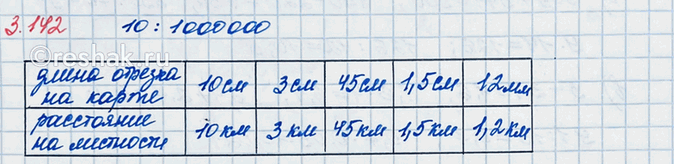 3.142 10 : 1000000
©reshak.ru
длина отрезка на карте 10 см 3 см 45 см 1,5 см 12 мм
расстояние на местности 10 км 3 км 45 км 1,5 км 1,2 км